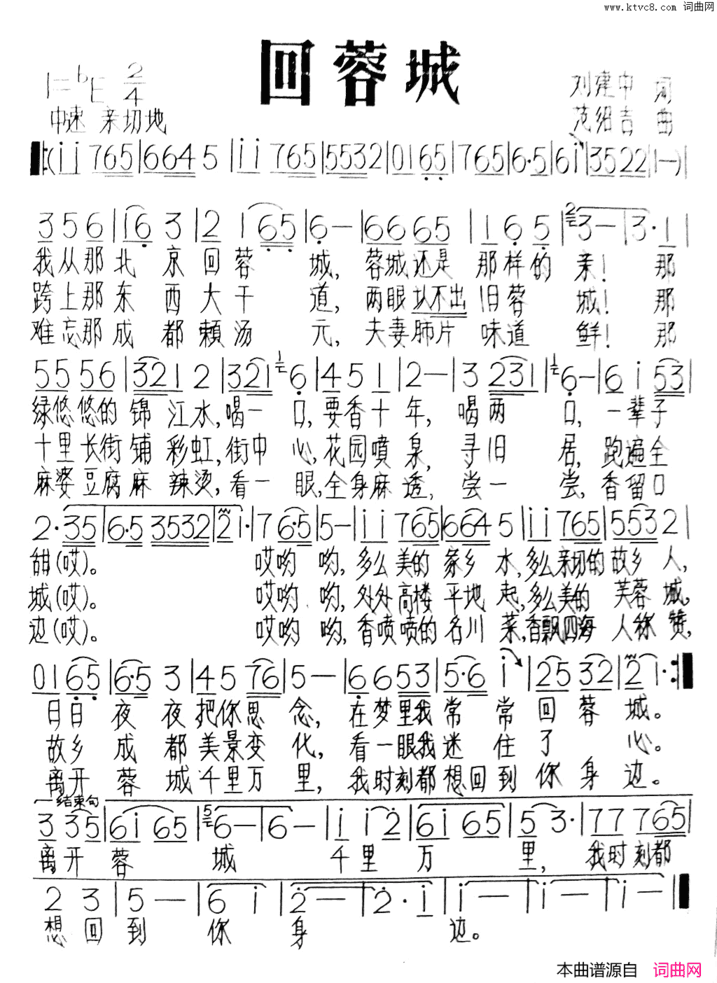 www.ktvc8.com 词曲网
回蓉城
1=ᵇE 2/4
刘建中 词
中速 亲切地
范绍吉 曲
‖:(i i 765|6645|i i 765|5532|0165|765|6·5|6 i|3522|1—)
356|163|21 65|6—|6665|165|3—|3·1|
我从那北京回蓉城,蓉城还是那样的亲!那
跨上那东西大干道,两眼认不出旧蓉城!那
难忘那成都赖汤元,夫妻肺片味道鲜!那
5556|3212|321 6|451|2—|3 231|6—|6 i 53|
绿悠悠的锦江水,喝一口,要香十年,喝两口,一辈子
十里长街铺彩虹,街中心,花园喷泉,寻旧居,跑遍全
麻婆豆腐麻辣烫,看一眼,全身麻透,尝一尝,香留口
2·35|6·5 3532|2·|765|5—|i i 765|6645|i i 765|5532|
甜(哎)。哎哟哟,多么美的家乡水,多么亲切的故乡人,
城(哎)。哎哟哟,处处高楼平地起,多么美的芙蓉城,
边(哎)。哎哟哟,香喷喷的名川菜,香飘四海人称赞,
0165|6·53|4576|5—|6653|5·6 i|2532|2 i·:‖
日日夜夜把你思念,在梦里我常常回蓉城。
故乡成都美景变化,看一眼我迷住了心。
离开蓉城千里万里,我时刻都想回到你身边。
结束句
3 35|6 i 65|6—|6—|i i 2|6 i 65|5 3·|77 765|
离开蓉城千里万里,我时刻都
2 3|5—|6 i|2—|2·i|i—|i—|i—|i—‖
想回到你身边。
本曲谱源自 词曲网